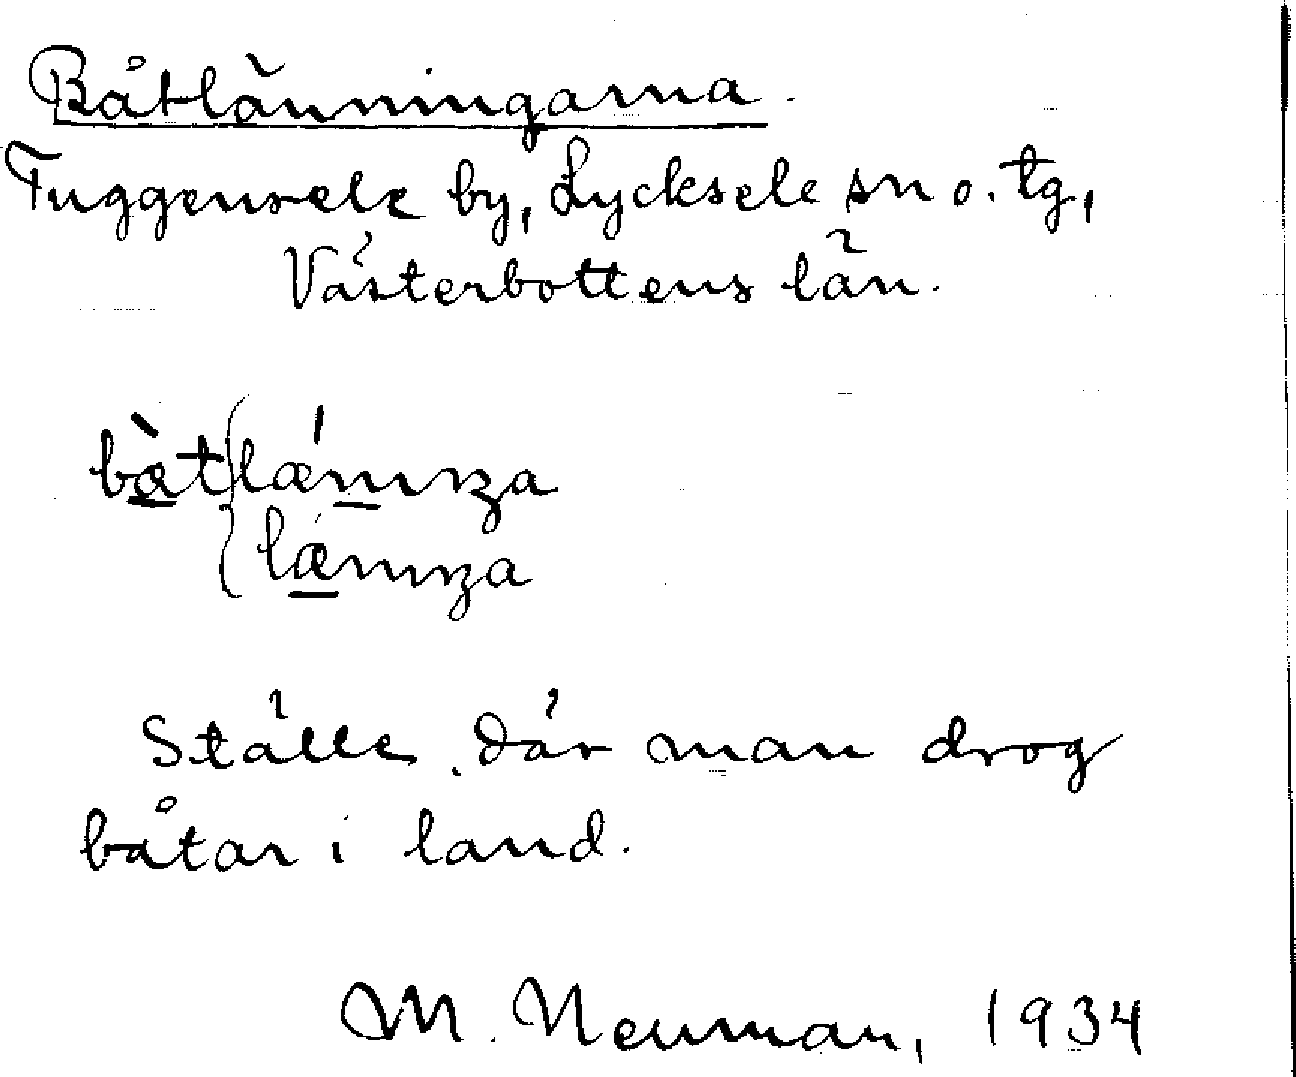 Båtlänningarna.
Tuggensele by, Lycksele sn o. tg,
Västerbottens län.
bàt{lǽnıŋa
{lǽnıŋa
Ställe där man drog
båtar i land.
M. Neuman, 1934